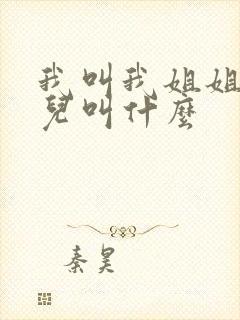 我叫我姐姐
兒叫什麼
秦昊